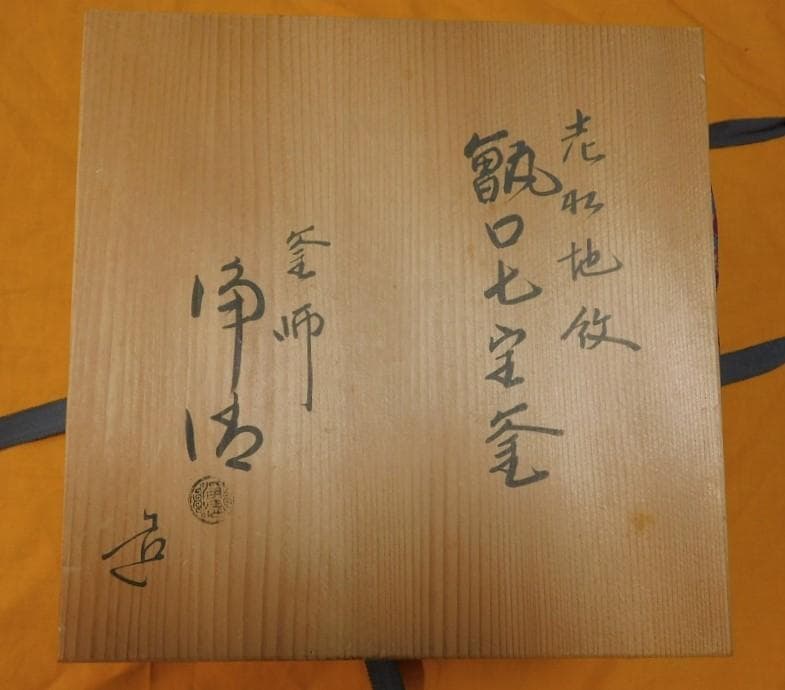 老松地紋
甑口七宝釜
釜師
浄清
造